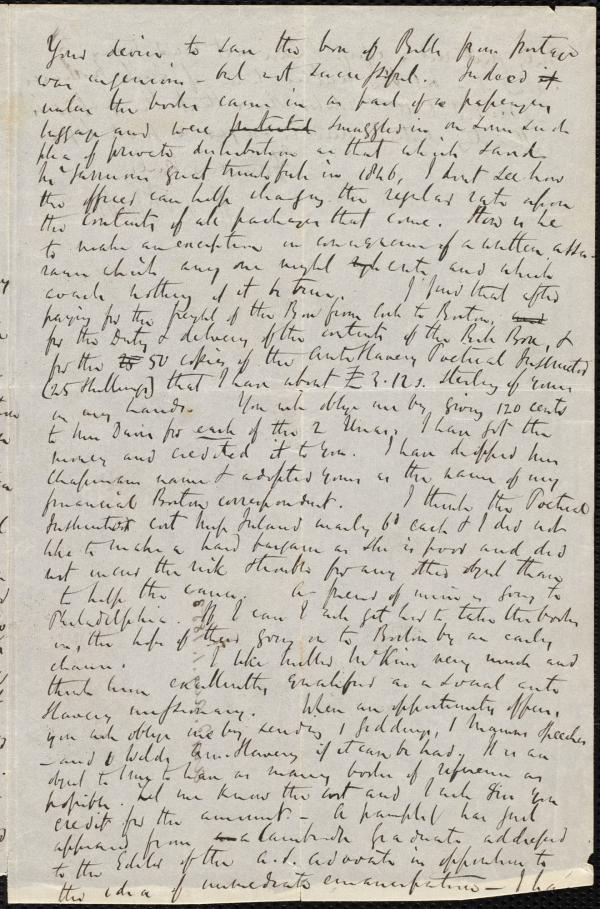 Your device to save the box of Bells from postage
was ingenious - but not successful. Indeed it
unless the books came in as part of a passengers
luggage and were protected smuggled in on some such
plea of private distribution as that which saved
Mr great trunk full in 1846, I don't see how
the officer can help charging the regular rate upon
the contents of all packages that come. How is he
to make an exception in consequence of a written assu-
rance which any one might write and which
avails nothing if it be true. I find that after
paying for the freight of the Box from Cork to Boston, and
for the Duty & delivery of the contents of the Box, &
for the 25 50 copies of the Anti Slavery Poetical Instructor
(25 Shillings) that I have about £3.12s. sterling of yours
in my hands. You will oblige me by giving 120 cents
to Miss Davis for each of the 2 I have got the
money and credited it to you. I have dropped Mrs
Chapman's name & adopted yours as the name of my
financial Boston correspondent. I think the Poetical
Instructor cost Miss Ireland nearly 6d each & I did not
like to make a hard bargain as she is poor and did
not incur the risk & trouble for any other object than
to help the cause. A friend of mine is going to
Philadelphia. If I can I will get her to take the books
in, the hope of their going on to Boston by an early
chance. I like Miller McKim very much and
think him excellently qualified as a social anti
slavery missionary. When an opportunity offers,
you will oblige me by sending 1 Giddings, 1 Manns Speeches
- and 1 Welds Am. Slavery if it can be had. It is an
object to me to have as many books of reference as
possible. Let me know the cost and I will give you
credit for the amount. - A pamphlet has just
appeared from a Cambridge Graduate addressed
to the Editor of the A.S. Advocate in opposition to
the idea of immediate emancipation - I ha